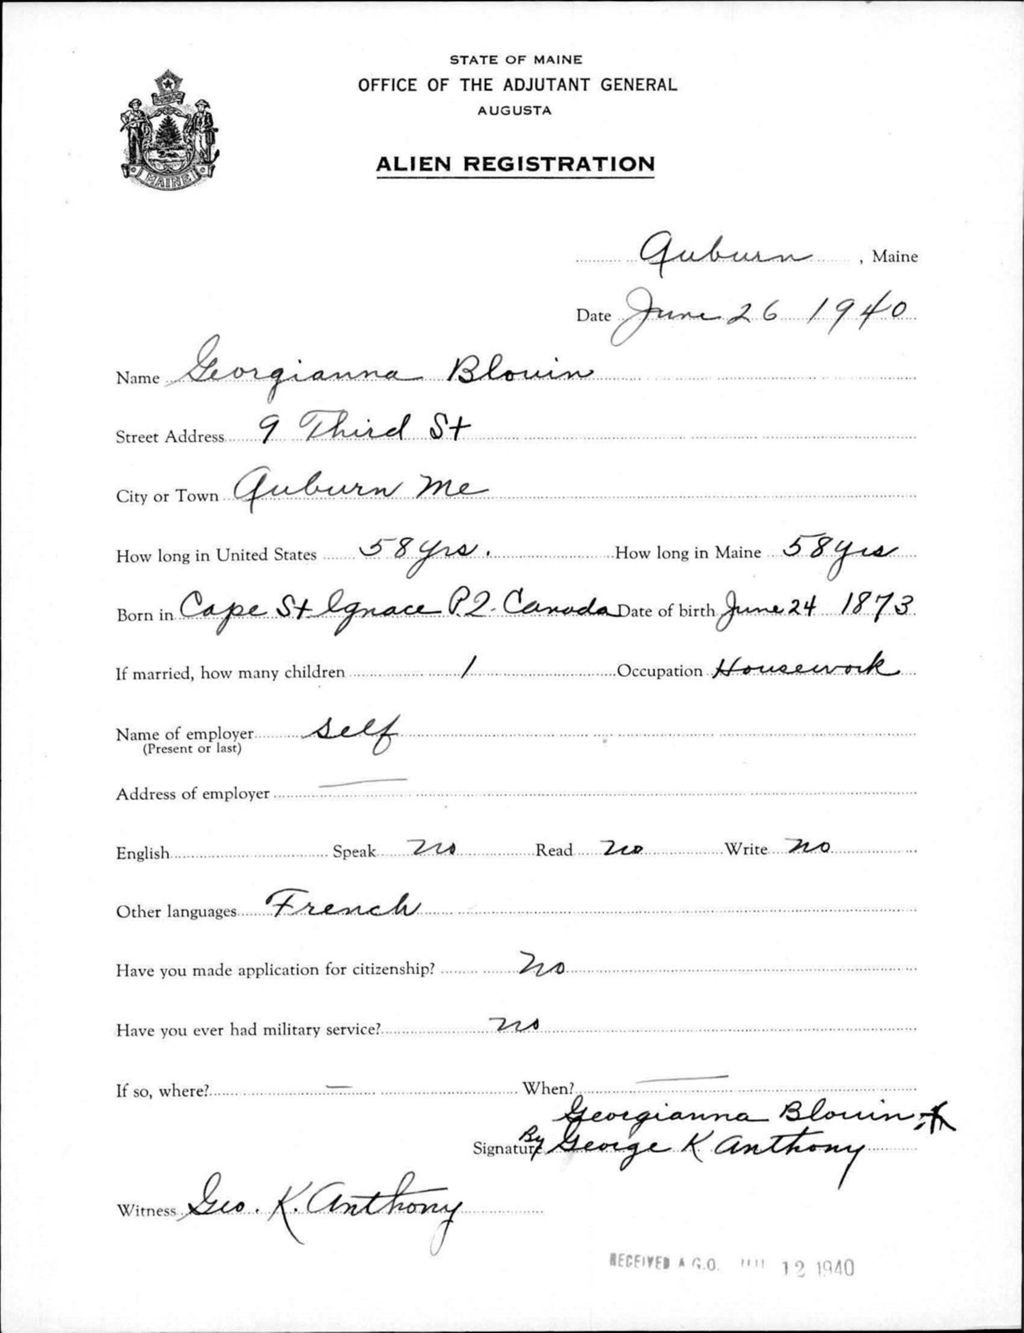 STATE OF MAINE
OFFICE OF THE ADJUTANT GENERAL
AUGUSTA
ALIEN REGISTRATION
MAINE
Auburn, Maine
Date June 26 1940
Name Georgianna Blouin
Street Address 9 Third St
City or Town Auburn Me
How long in United States 58 yrs. How long in Maine 58 yrs
Born in Cape St Ignace P.Q. Canada Date of birth June 24 1873
If married, how many children 1 Occupation Housework
Name of employer self
(Present or last)
Address of employer —
English Speak no Read no Write no
Other languages French
Have you made application for citizenship? No
Have you ever had military service? no
If so, where? — When? —
Georgianna Blouin X
Signature By George K Anthony
Witness Geo. K. Anthony
RECEIVED A.G.O. 12 1940